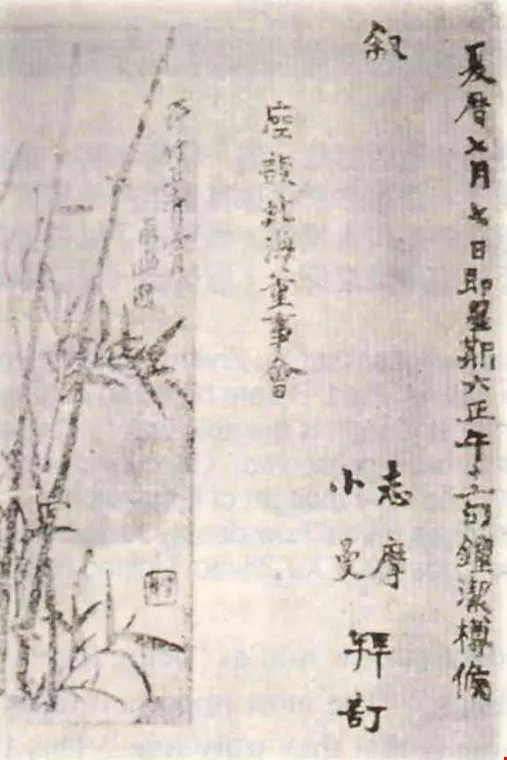 夏曆七月七日即星期六正午十二句鐘潔樽候
叙
志摩
小曼
拜訂
座設北海董事會